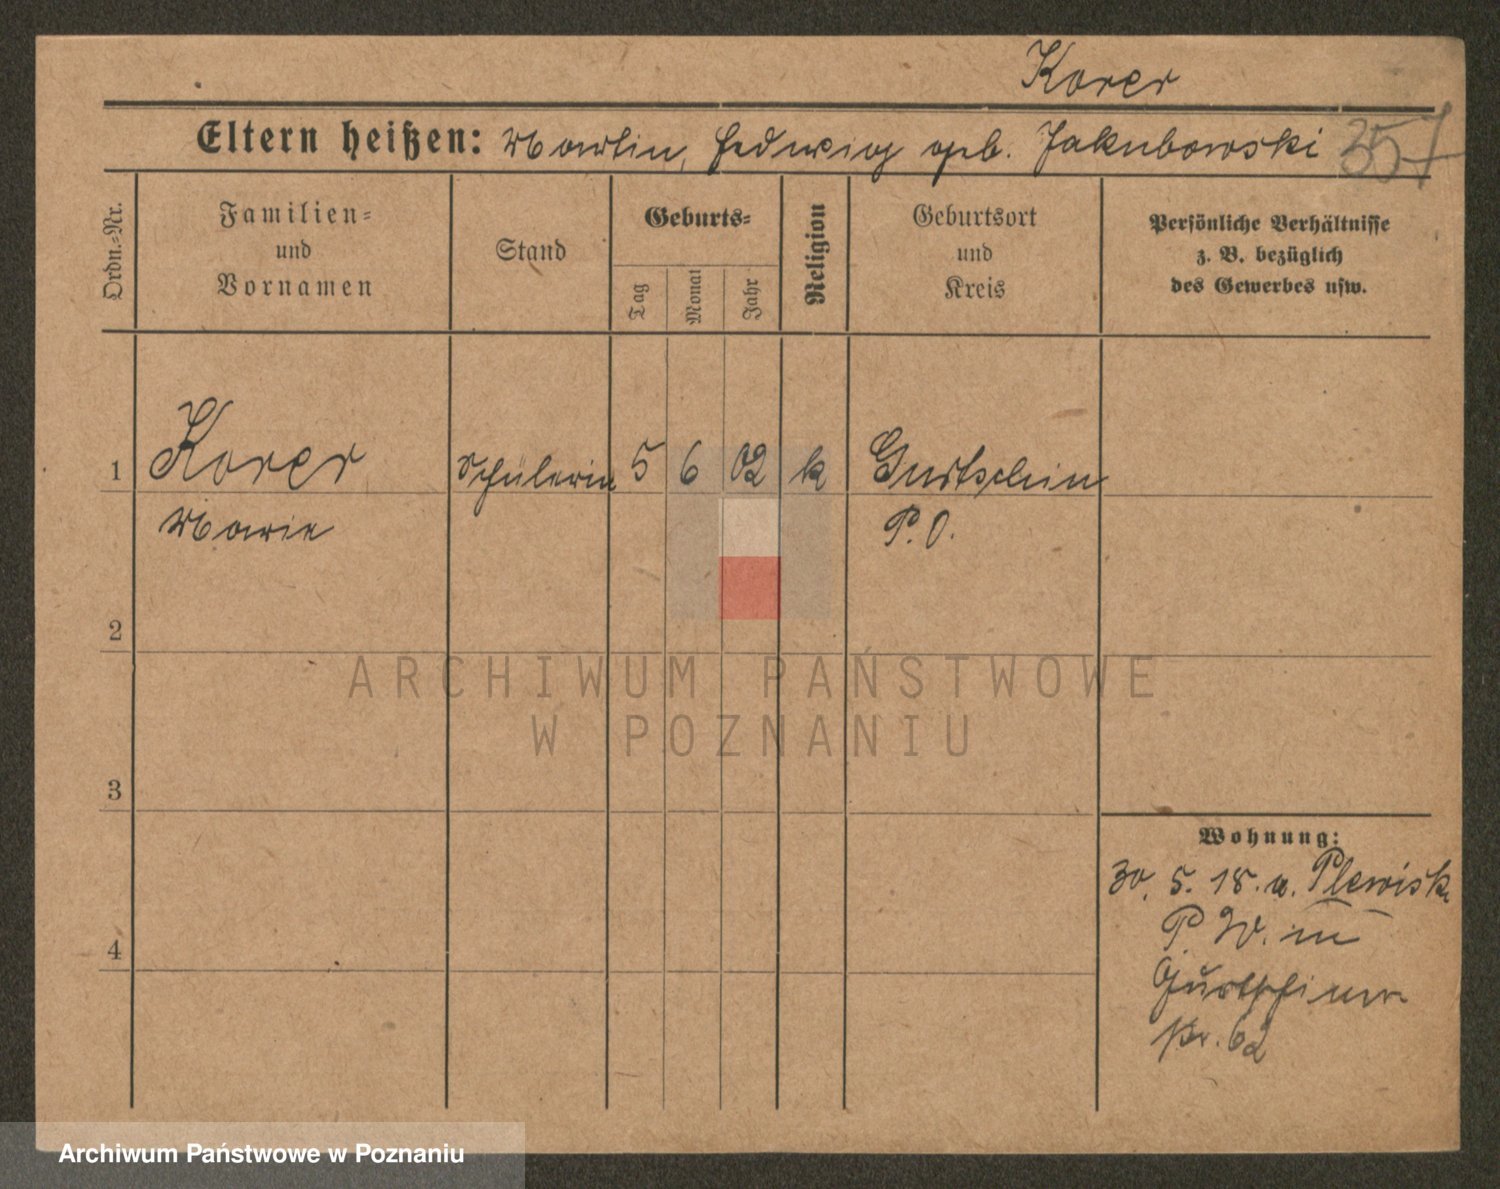 Korcr
Eltern heißen: Martin, Hedwig geb. Jakubowski
357
Ordn.-Nr.
Familien- und Vornamen
Stand
Geburts-
Tag
Monat
Jahr
Religion
Geburtsort und Kreis
Persönliche Verhältnisse z. B. bezüglich des Gewerbes usw.
1 Korcr Schülerin 5 6 02 k Gurtschin
Marie P. O.
2
ARCHIWUM PAŃSTWOWE
W POZNANIU
3
Wohnung:
30. 5. 18. v. Plewisk
P. W. in
4
Gurtschiner
str. 62
Archiwum Państwowe w Poznaniu